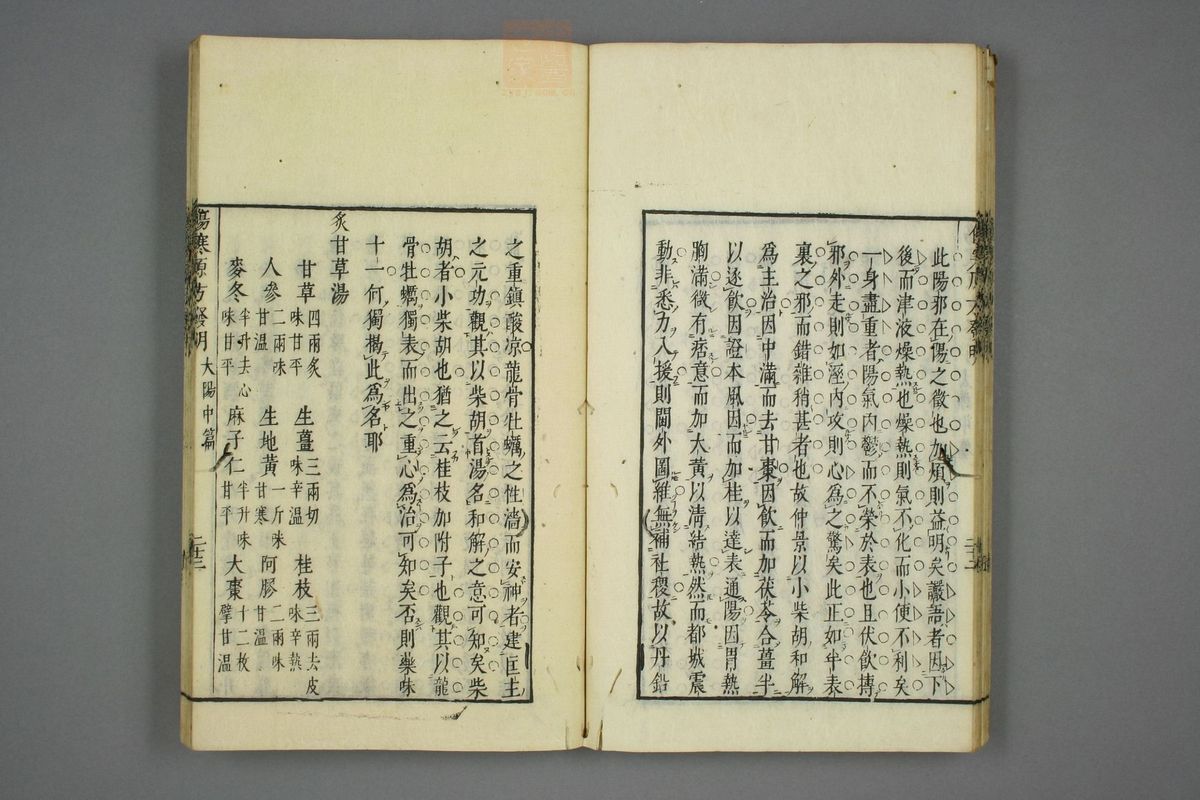 此陽邪在傷之徵也加煩則益明矣讝語者因下
後而津液燥熱也燥熱則氣不化而小便不利矣
一身盡重者陽氣內鬱而不榮於表也且伏飲摶
邪外走則如溼內攻則心爲之驚矣此正如半表
裏之邪而錯雜稍甚者也故仲景以小柴胡和解
爲主治因中滿而去甘棗因飲而加茯苓合薑半
以逐飲因證本風因而加桂以達表通陽因胃熱
胸滿微有痞意而加大黃以淸結熱然而都城震
動非悉力入援則閫外圖維無補社稷故以丹鉛
之重鎮酸凉龍骨牡蠣之性濇而安神者建匡主
之元功觀其以柴胡首湯名和解之意可知矣柴
胡者小柴胡也猶之云桂枝加附子也觀其以龍
骨牡蠣獨表而出之重心爲治可知矣否則藥味
十一何獨揭此爲名耶
炙甘草湯
甘草四兩炙味甘平 生薑三兩切味辛溫 桂枝三兩去皮味辛熱
人參二兩味甘溫 生地黃一斤味甘寒 阿膠二兩味甘溫
麥冬半升去心味甘平 麻子仁半升味甘平 大棗十二枚擘甘溫
傷寒源方發明 大陽中篇 二十三
二十二